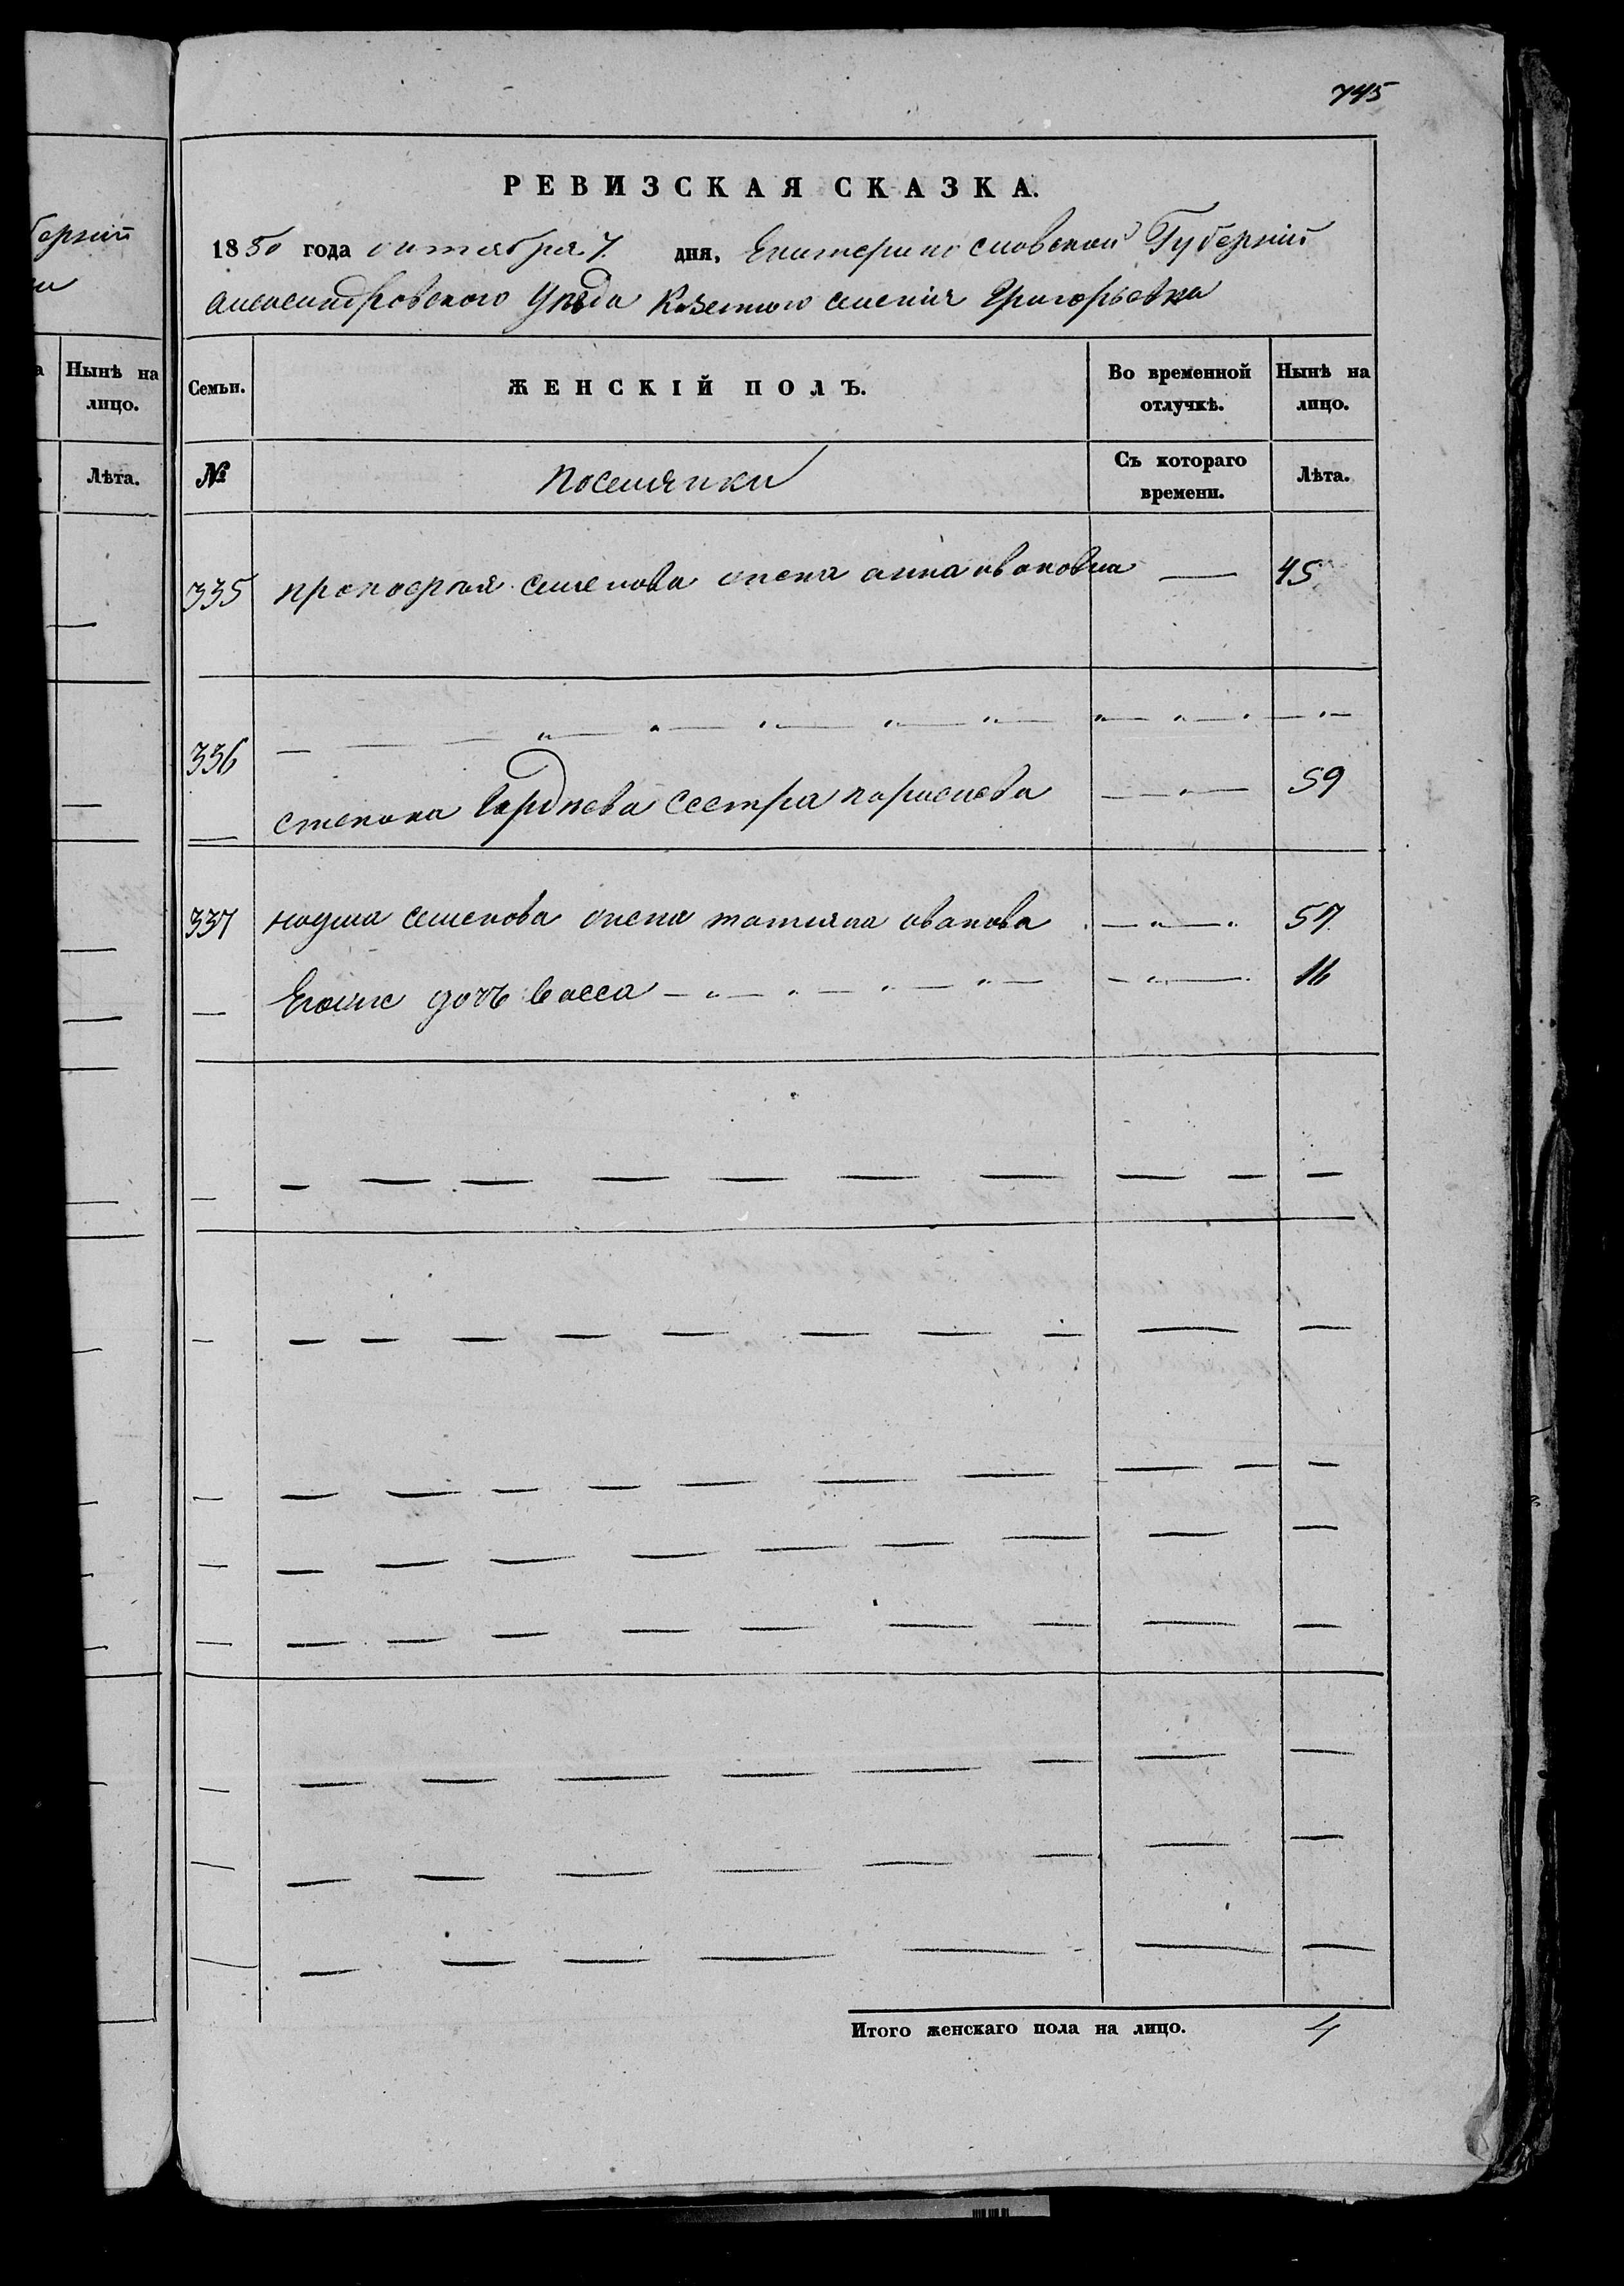 745
РЕВИЗСКАЯ СКАЗКА.
1850 года октября 7. дня, Екатеринославской Губернiи
Александровского Уѣзда Казенного селенiя Григорьевки
Семьи.
ЖЕНСКIЙ ПОЛЪ.
Во временной отлучкѣ.
Нынѣ на лицо.
№
поселянки
Съ котораго времени.
Лѣта.
335 прокофия семенова жена анна ивановна — 45
336
степана сестра 59
337 наума семенова жена татияна иванова 57
Егоже дочь васса 16
Итого женскаго пола на лицо. 4
бернiи
Нынѣ на лицо.
Лѣта.